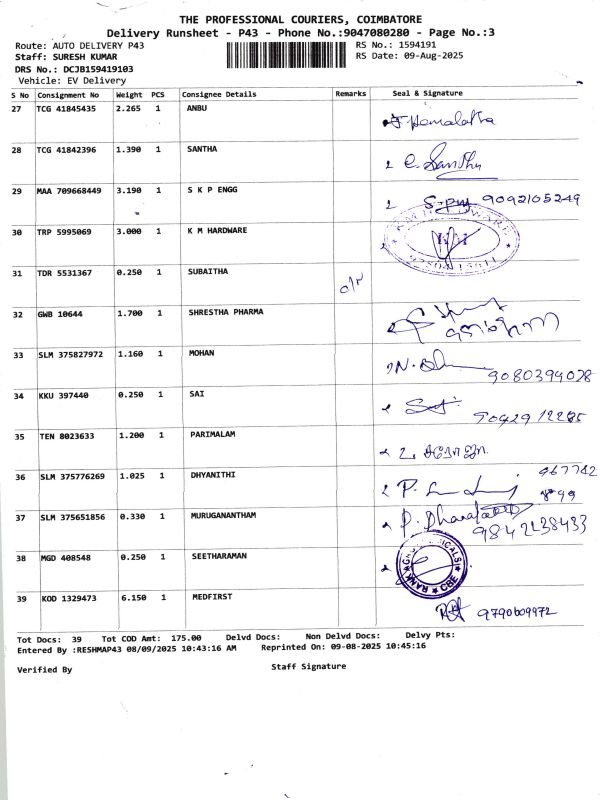 THE PROFESSIONAL COURIERS, COIMBATORE
Delivery Runsheet - P43 - Phone No.:9047080280 - Page No.:3
Route: AUTO DELIVERY P43 RS No.: 1594191
Staff: SURESH KUMAR RS Date: 09-Aug-2025
DRS No.: DCJB159419103
Vehicle: EV Delivery
S No Consignment No Weight PCS Consignee Details Remarks Seal & Signature
27 TCG 41845435 2.265 1 ANBU J Hemalatha
28 TCG 41842396 1.390 1 SANTHA C. Santhu
29 MAA 709668449 3.190 1 S K P ENGG 9092105249
30 TRP 5995069 3.000 1 K M HARDWARE
31 TDR 5531367 0.250 1 SUBAITHA
32 GWB 10644 1.700 1 SHRESTHA PHARMA
33 SLM 375827972 1.160 1 MOHAN 9080394028
34 KKU 397440 0.250 1 SAI
35 TEN 8023633 1.200 1 PARIMALAM
36 SLM 375776269 1.025 1 DHYANITHI
37 SLM 375651856 0.330 1 MURUGANANTHAM 9842138433
38 MGD 408548 0.250 1 SEETHARAMAN
39 KOD 1329473 6.150 1 MEDFIRST 9790609972
Tot Docs: 39 Tot COD Amt: 175.00 Delvd Docs: Non Delvd Docs: Delvy Pts:
Entered By :RESHMAP43 08/09/2025 10:43:16 AM Reprinted On: 09-08-2025 10:45:16
Verified By Staff Signature